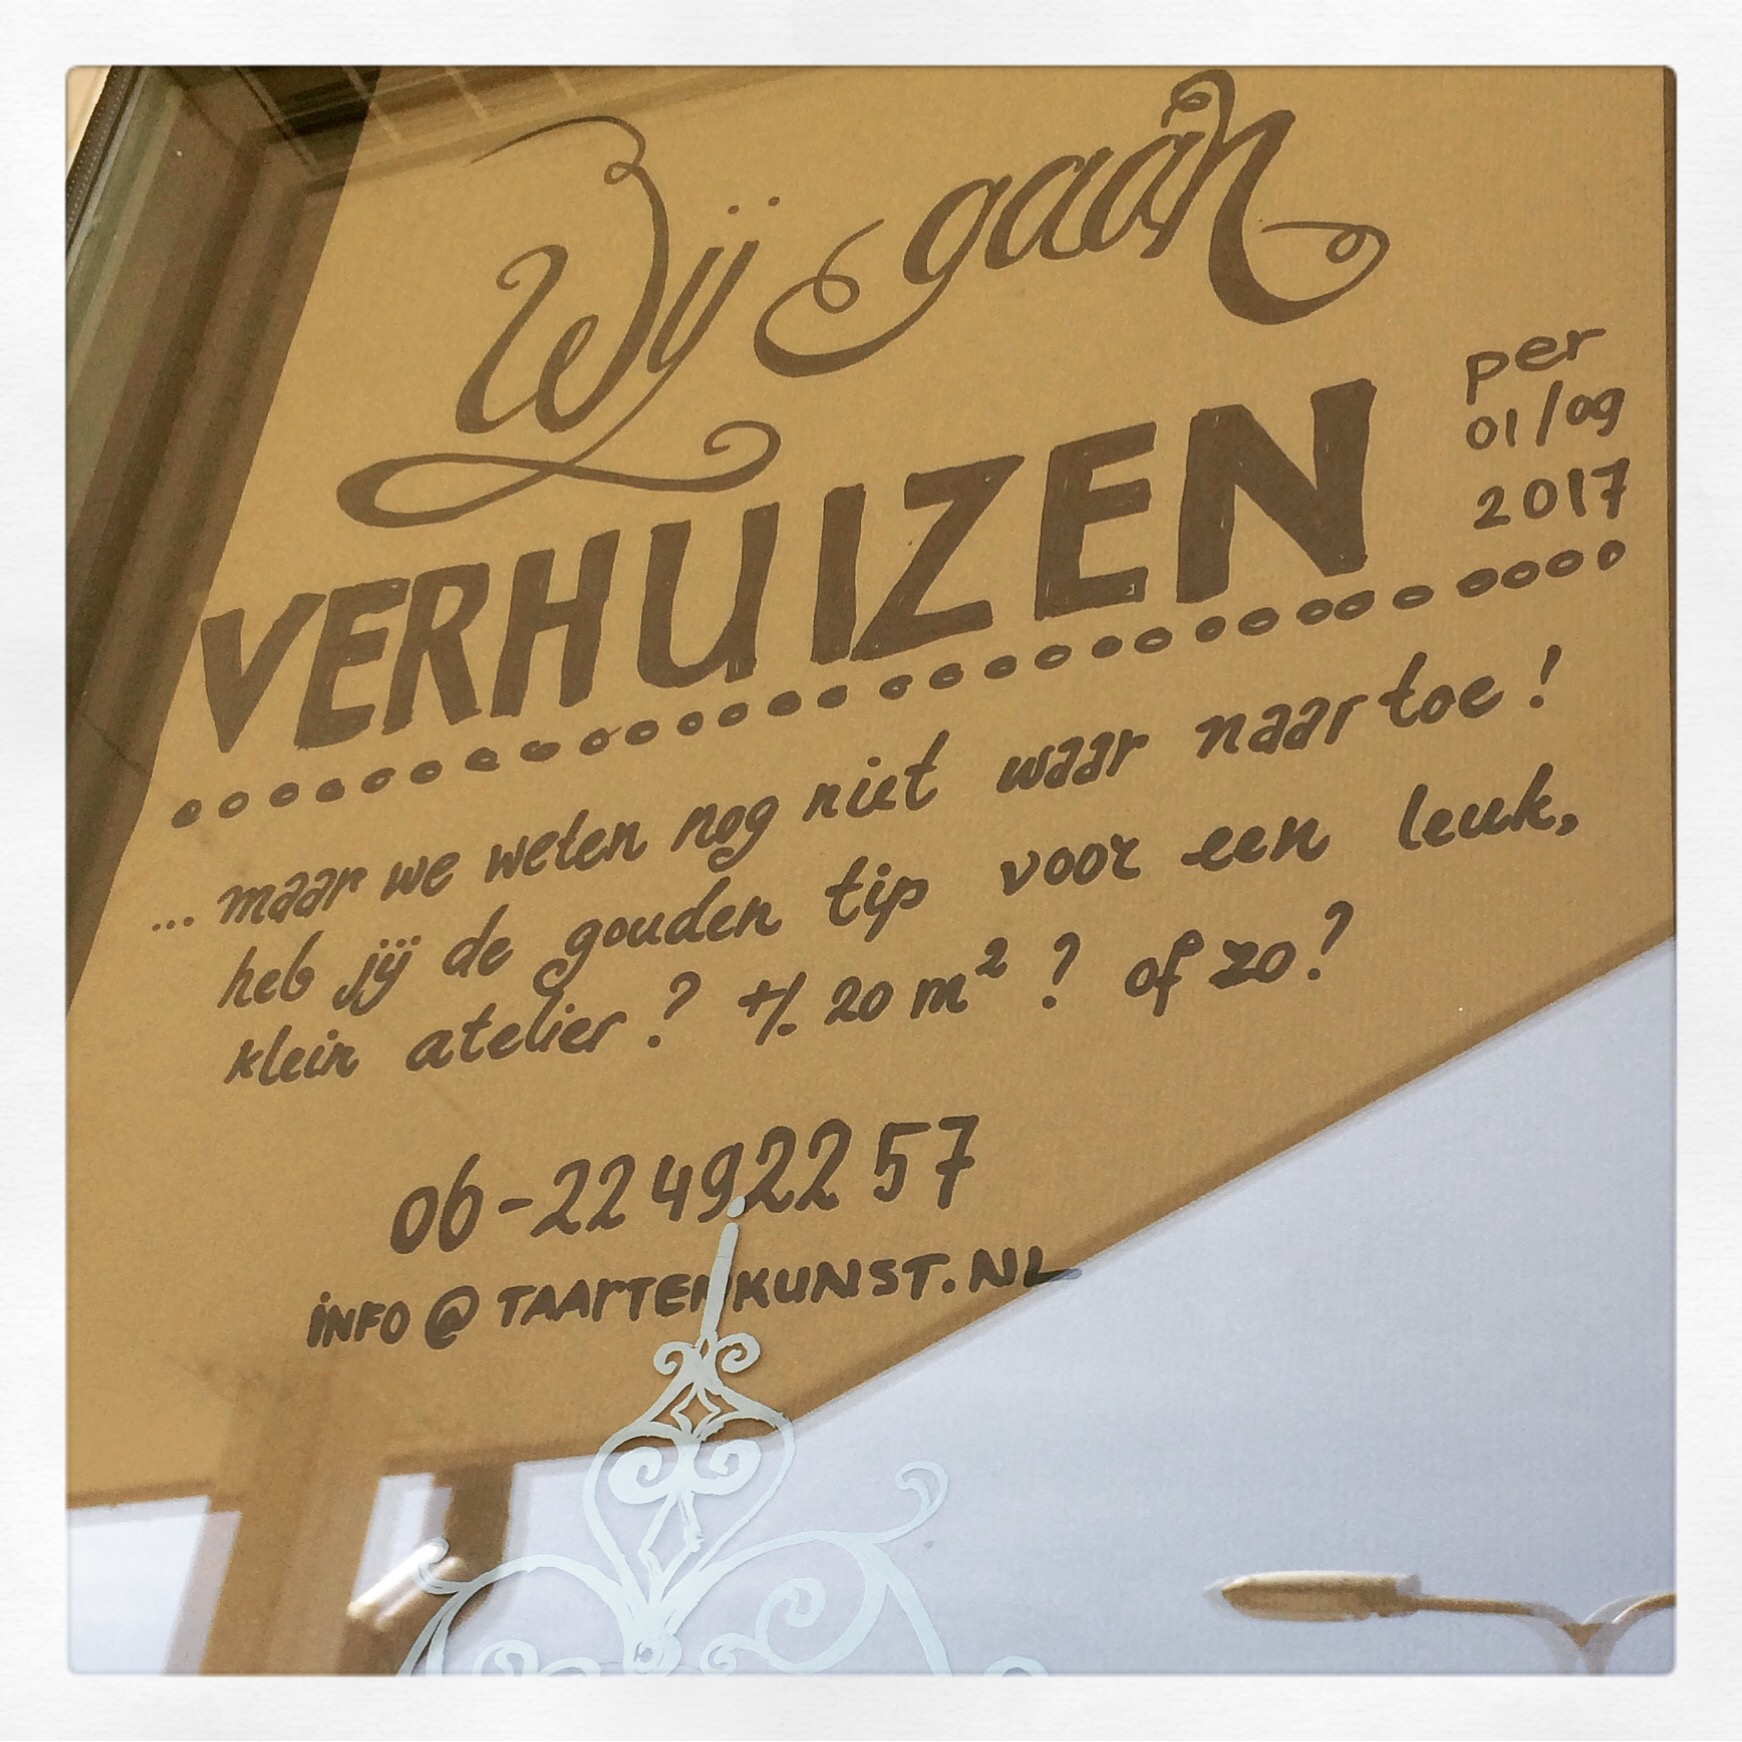 Wij gaan
VERHUIZEN
per
01/09
2017
... maar we weten nog niet waar naar toe!
heb jij de gouden tip voor een leuk,
klein atelier? +/- 20 m²? of zo?
06-22492257
iNFO@TAArTENKUNST.NL